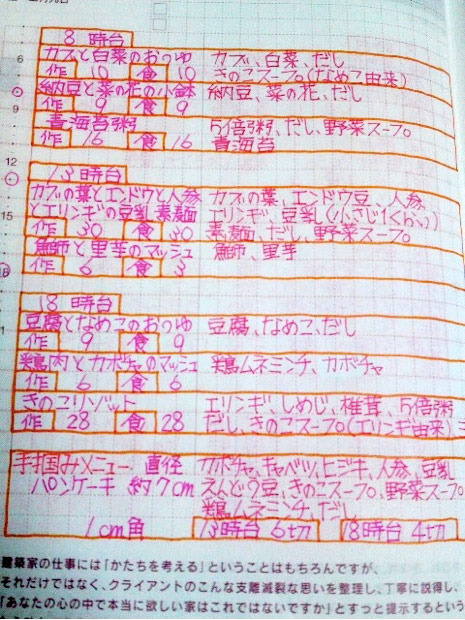 8 時台
カブと白菜のおつゆ カブ、白菜、だし
作 10 食 10 きのこスープ(なめこ由来)
納豆と菜の花の小鉢 納豆、菜の花、だし
作 9 食 9
青海苔粥 5倍粥、だし、野菜スープ
作 16 食 16 青海苔
13時台
カブの葉とエンドウと人参 カブの葉、エンドウ豆、人参
とエリンギの豆乳素麺 エリンギ、豆乳(小さじ1くらい)
作 30 食 30 素麺、だし、野菜スープ
鰤と里芋のマッシュ 鰤、里芋
作 6 食 3
18時台
豆腐となめこのおつゆ 豆腐、なめこ、だし
作 9 食 9
鶏肉とカボチャのマッシュ 鶏ムネミンチ、カボチャ
作 6 食 6
きのこリゾット エリンギ、しめじ、椎茸、5倍粥
作 28 食 28 だし、きのこスープ(エリンギ由来)
手掴みメニュー 直径 カボチャ、キャベツ、ヒジキ、人参、豆乳
パンケーキ 約7cm えんどう豆、きのこスープ、野菜スープ
鶏ムネミンチ、だし
1cm角 13時台 6切 18時台 4切
6
12
15
18
建築家の仕事には「かたちを考える」ということはもちろんですが、
それだけではなく、クライアントのこんな支離滅裂な思いを整理し、丁寧に説得し、
「あなたの心の中で本当に欲しい家はこれではないですか」とすっと提示するという